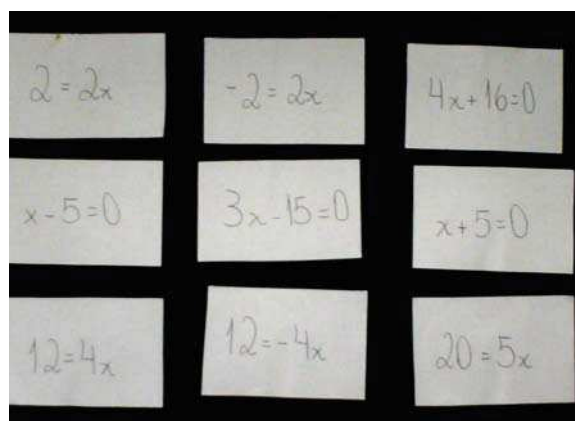 2 = 2x
-2 = 2x
4x + 16 = 0
x - 5 = 0
3x - 15 = 0
x + 5 = 0
12 = 4x
12 = -4x
20 = 5x